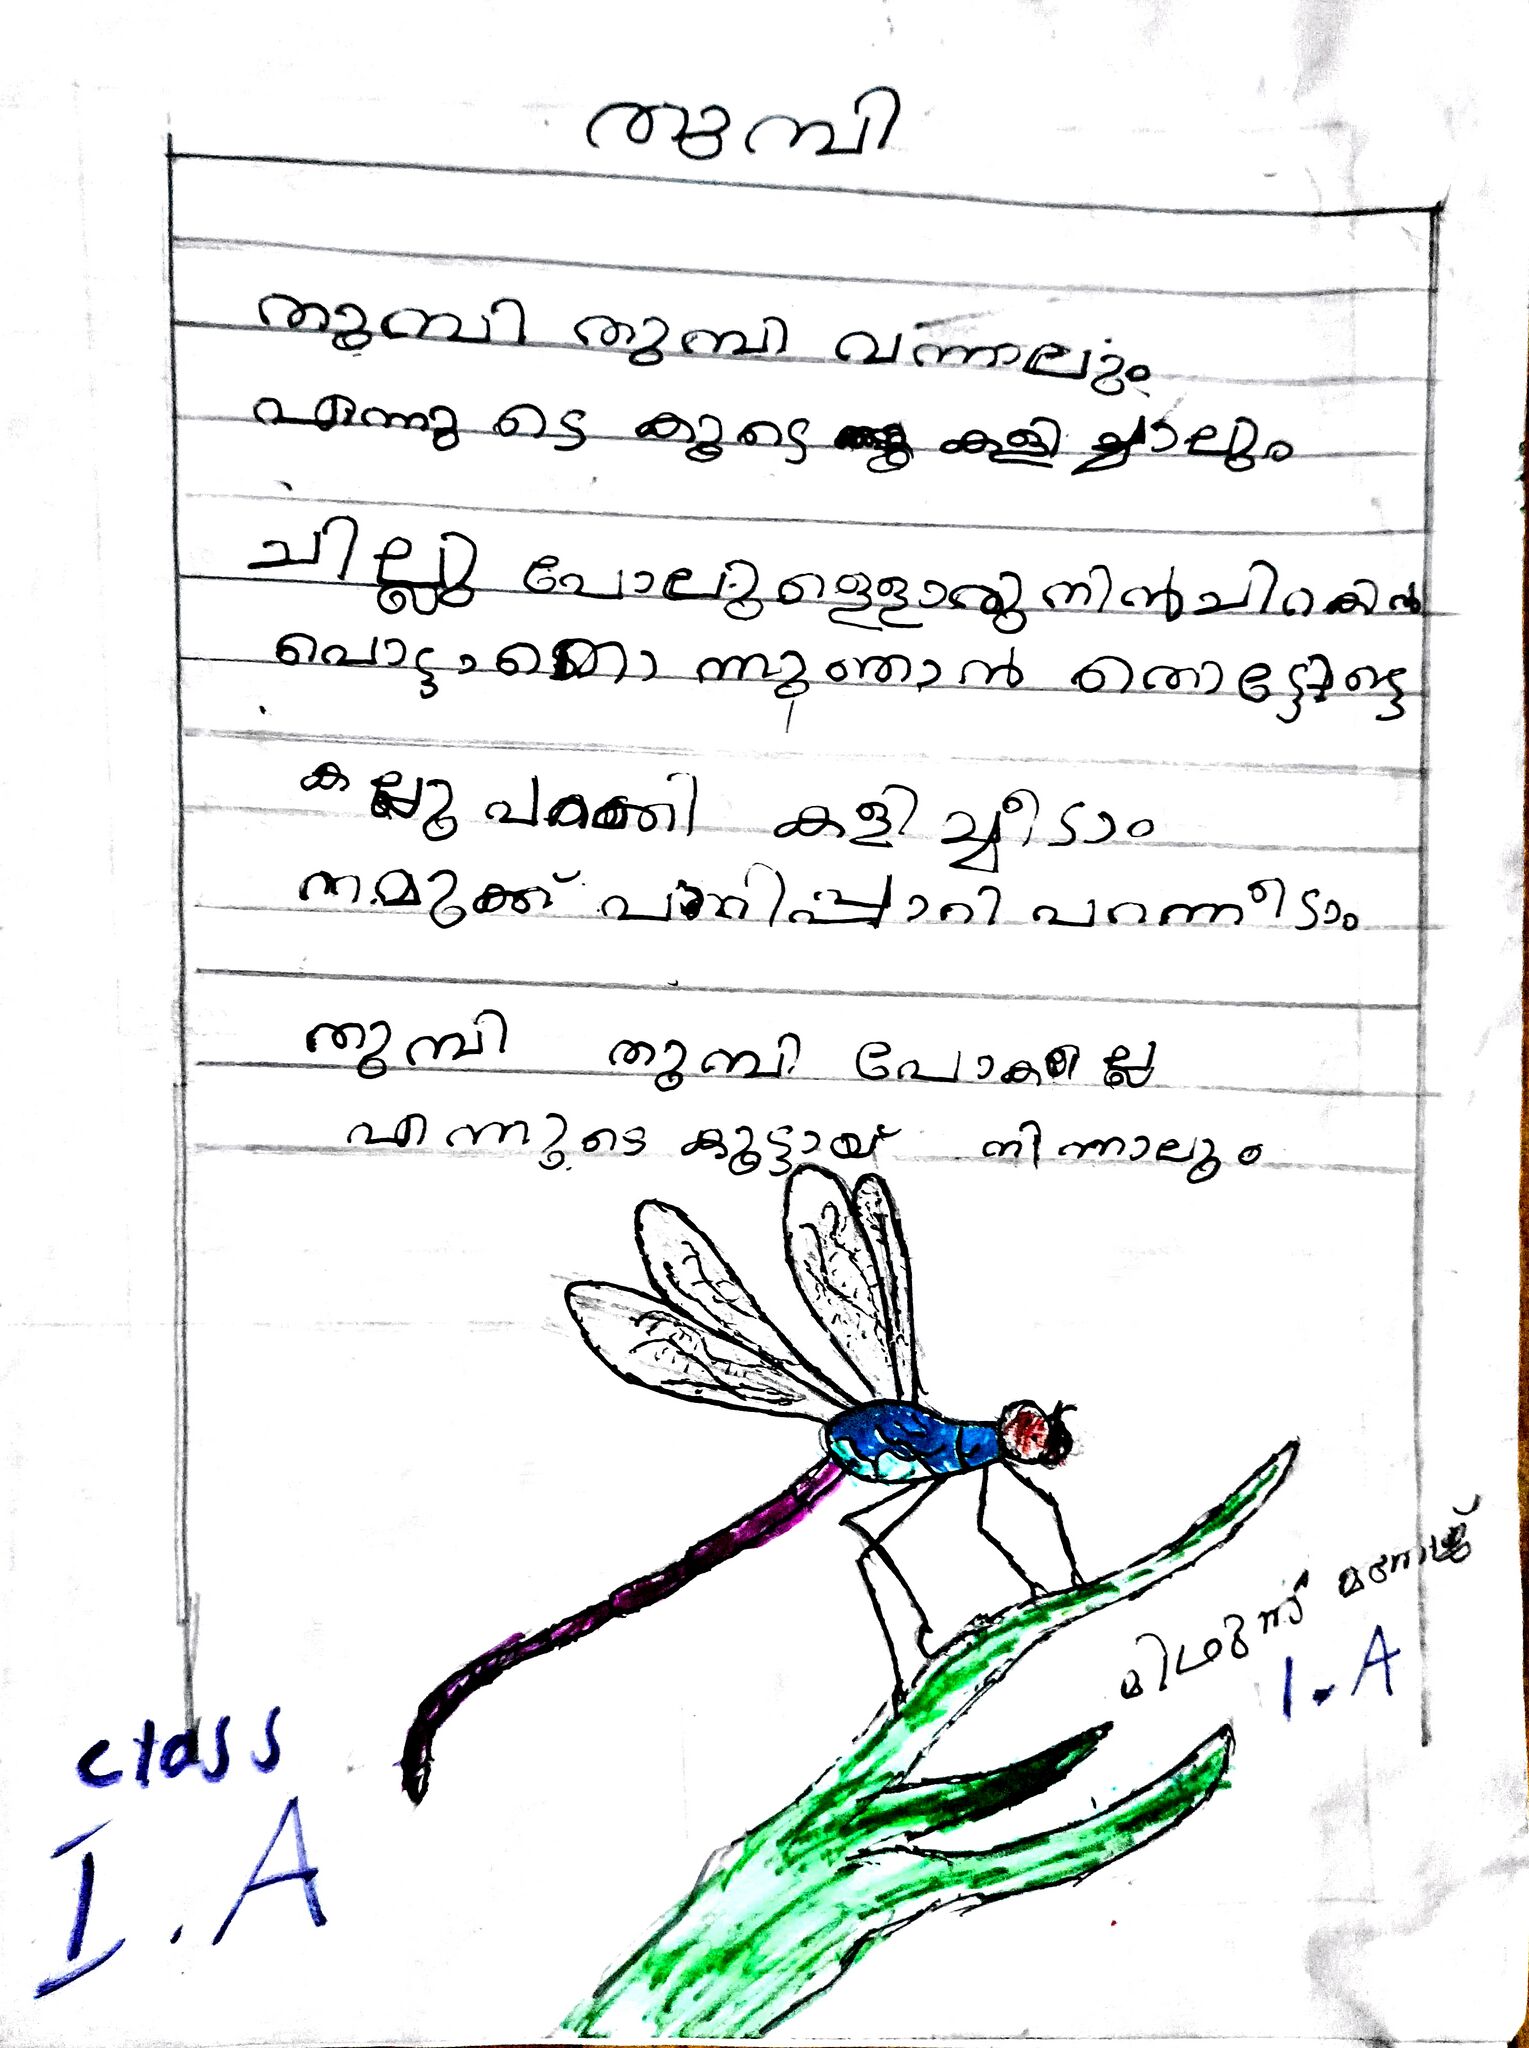 തുമ്പി
തുമ്പി തുമ്പി വന്നാലും
എന്നു ടെ കൂടെ കളി ച്ചാലും
ചില്ലു പോലുള്ളൊരു നിൻചിറകിൻ
പൊട്ടാതൊ ന്നുഞാൻ തൊട്ടോട്ടെ
കല്ലു പറത്തി കളി ച്ചീടാം
നമുക്ക് പാറിപ്പാറി പറന്നീടാം
തുമ്പി തുമ്പി പോകല്ലെ
എന്നുടെ കൂട്ടായ് നിന്നാലും
മിഥുന്
I. A
class
I. A